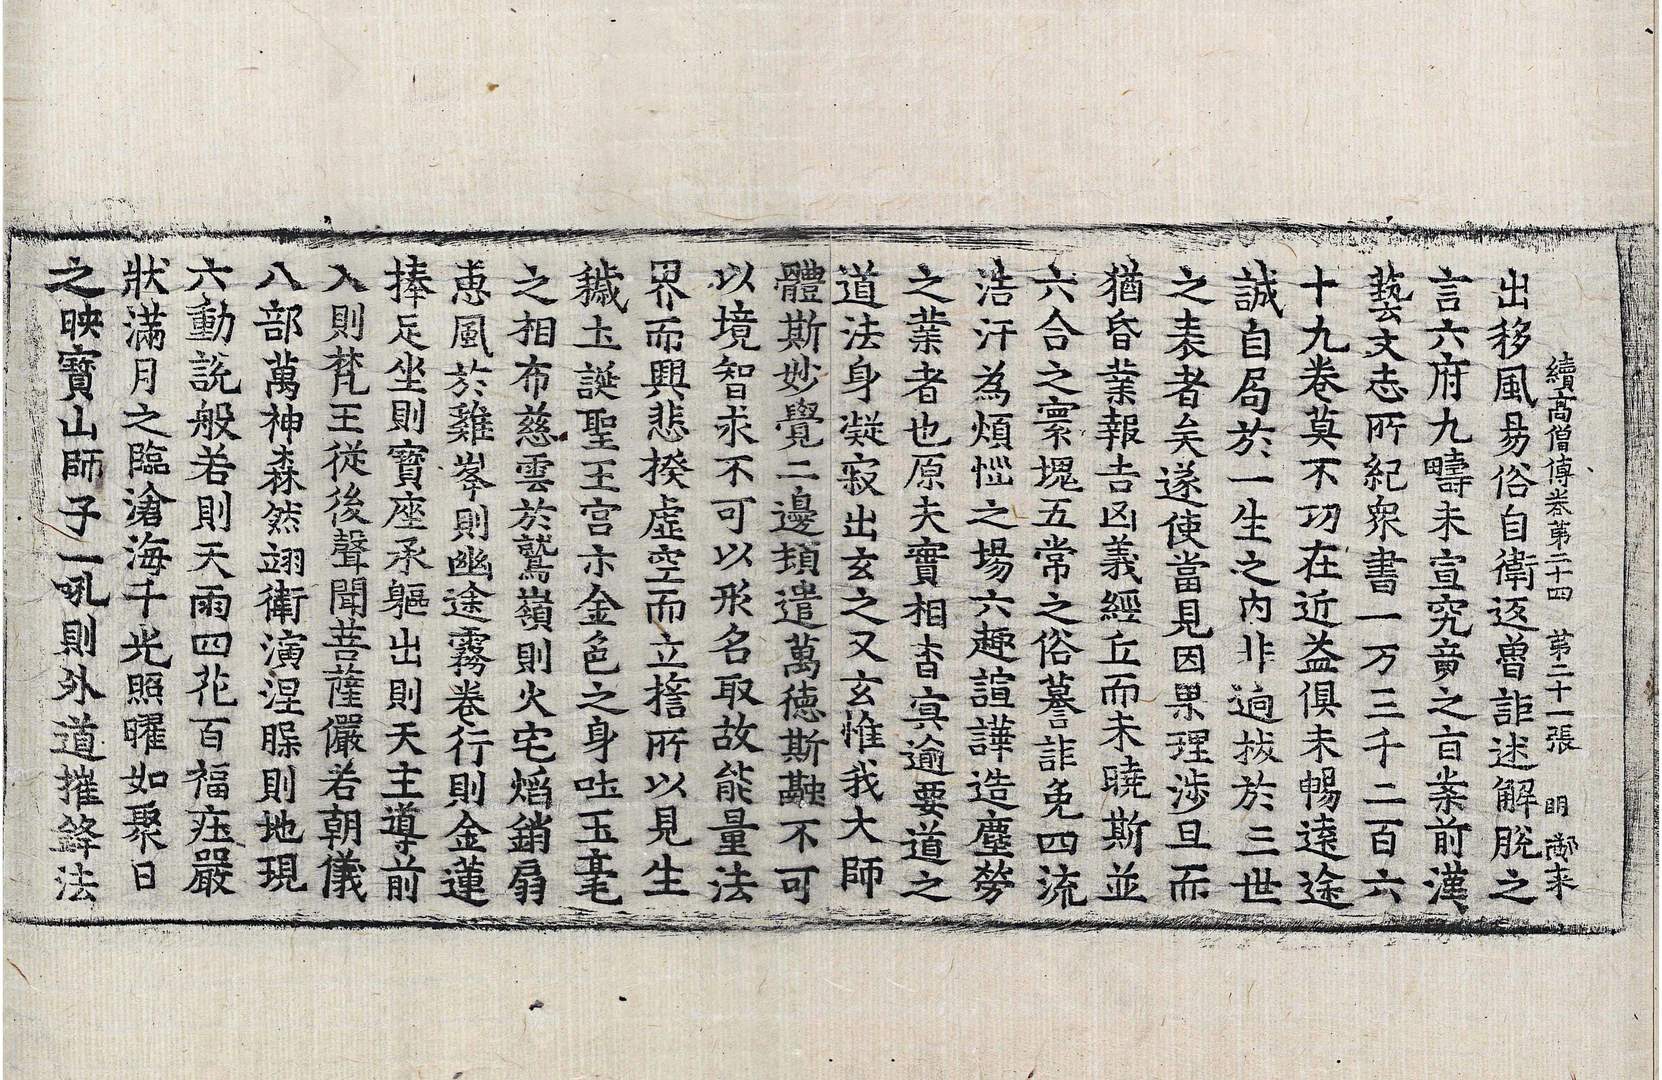 續高僧傳卷第二十四 第二十一張 明
出移風易俗自衛返魯詎述解脫之
言六府九疇未宣究竟之旨案前漢
藝文志所紀衆書一万三千二百六
十九卷莫不功在近益俱未暢遠途
誠自局於一生之內非逈拔於三世
之表者矣遂使當見因果理涉旦而
猶昏業報吉凶義經丘而未曉斯並
六合之寰塊五常之俗謩詎免四流
浩汗為煩惱之場六趣諠譁造塵勞
之業者也原夫實相杳冥逾要道之
道法身凝寂出玄之又玄惟我大師
體斯妙覺二邊頓遣萬德斯融不可
以境智求不可以形名取故能量法
界而興悲揆虛空而立誓所以見生
穢土誕聖王宮示金色之身吐玉毫
之相布慈雲於鷲嶺則火宅熖銷扇
惠風於雞峯則幽途霧卷行則金蓮
捧足坐則寶座承軀出則天主導前
入則梵王從後聲聞菩薩儼若朝儀
八部萬神森然翊衛演涅槃則地現
六動說般若則天雨四花百福莊嚴
狀滿月之臨滄海千光照曜如聚日
之映寶山師子一吼則外道摧鋒法